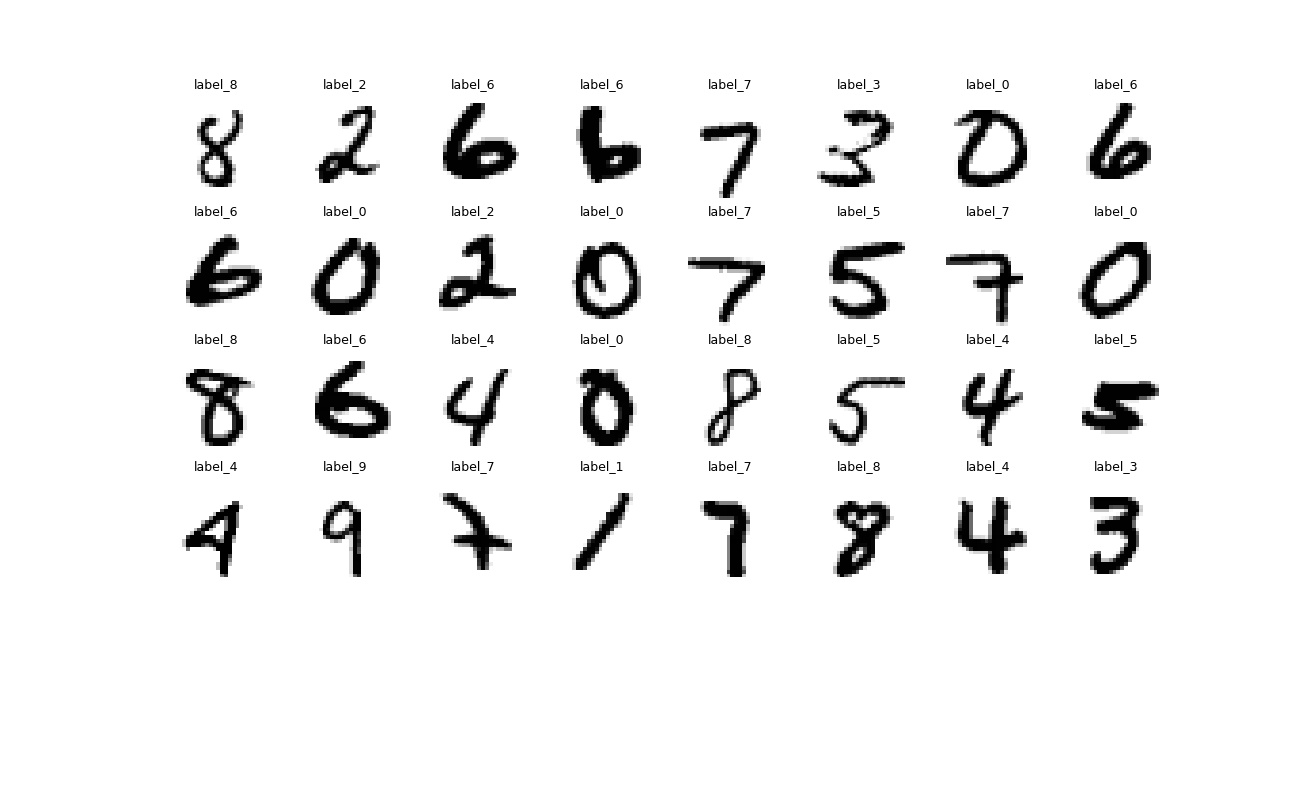 label_8 label_2 label_6 label_6 label_7 label_3 label_0 label_6
8 2 6 6 7 3 0 6
label_6 label_0 label_2 label_0 label_7 label_5 label_7 label_0
6 0 2 0 7 5 7 0
label_8 label_6 label_4 label_0 label_8 label_5 label_4 label_5
8 6 4 0 8 5 4 5
label_4 label_9 label_7 label_1 label_7 label_8 label_4 label_3
4 9 7 1 7 8 4 3